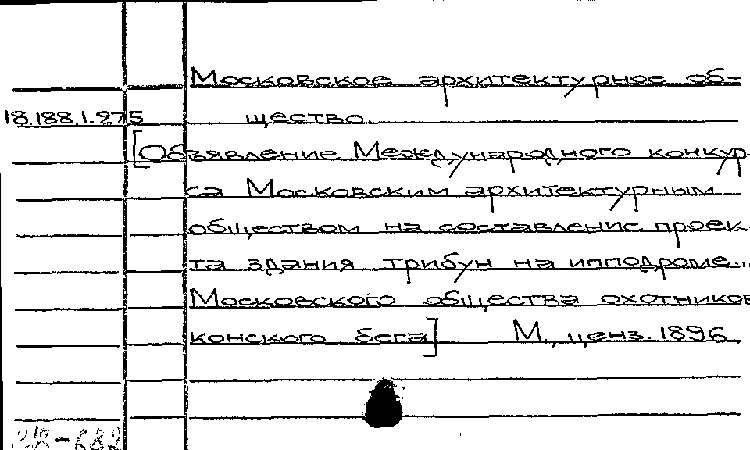 Московское архитектурное об-
18.188.1.275 щество.
[Объявление Международного конкур
са Московским архитектурным
обществом на составление проек
та здания трибун на ипподроме...
Московского общества охотников
конского бега] М., ценз. 1896